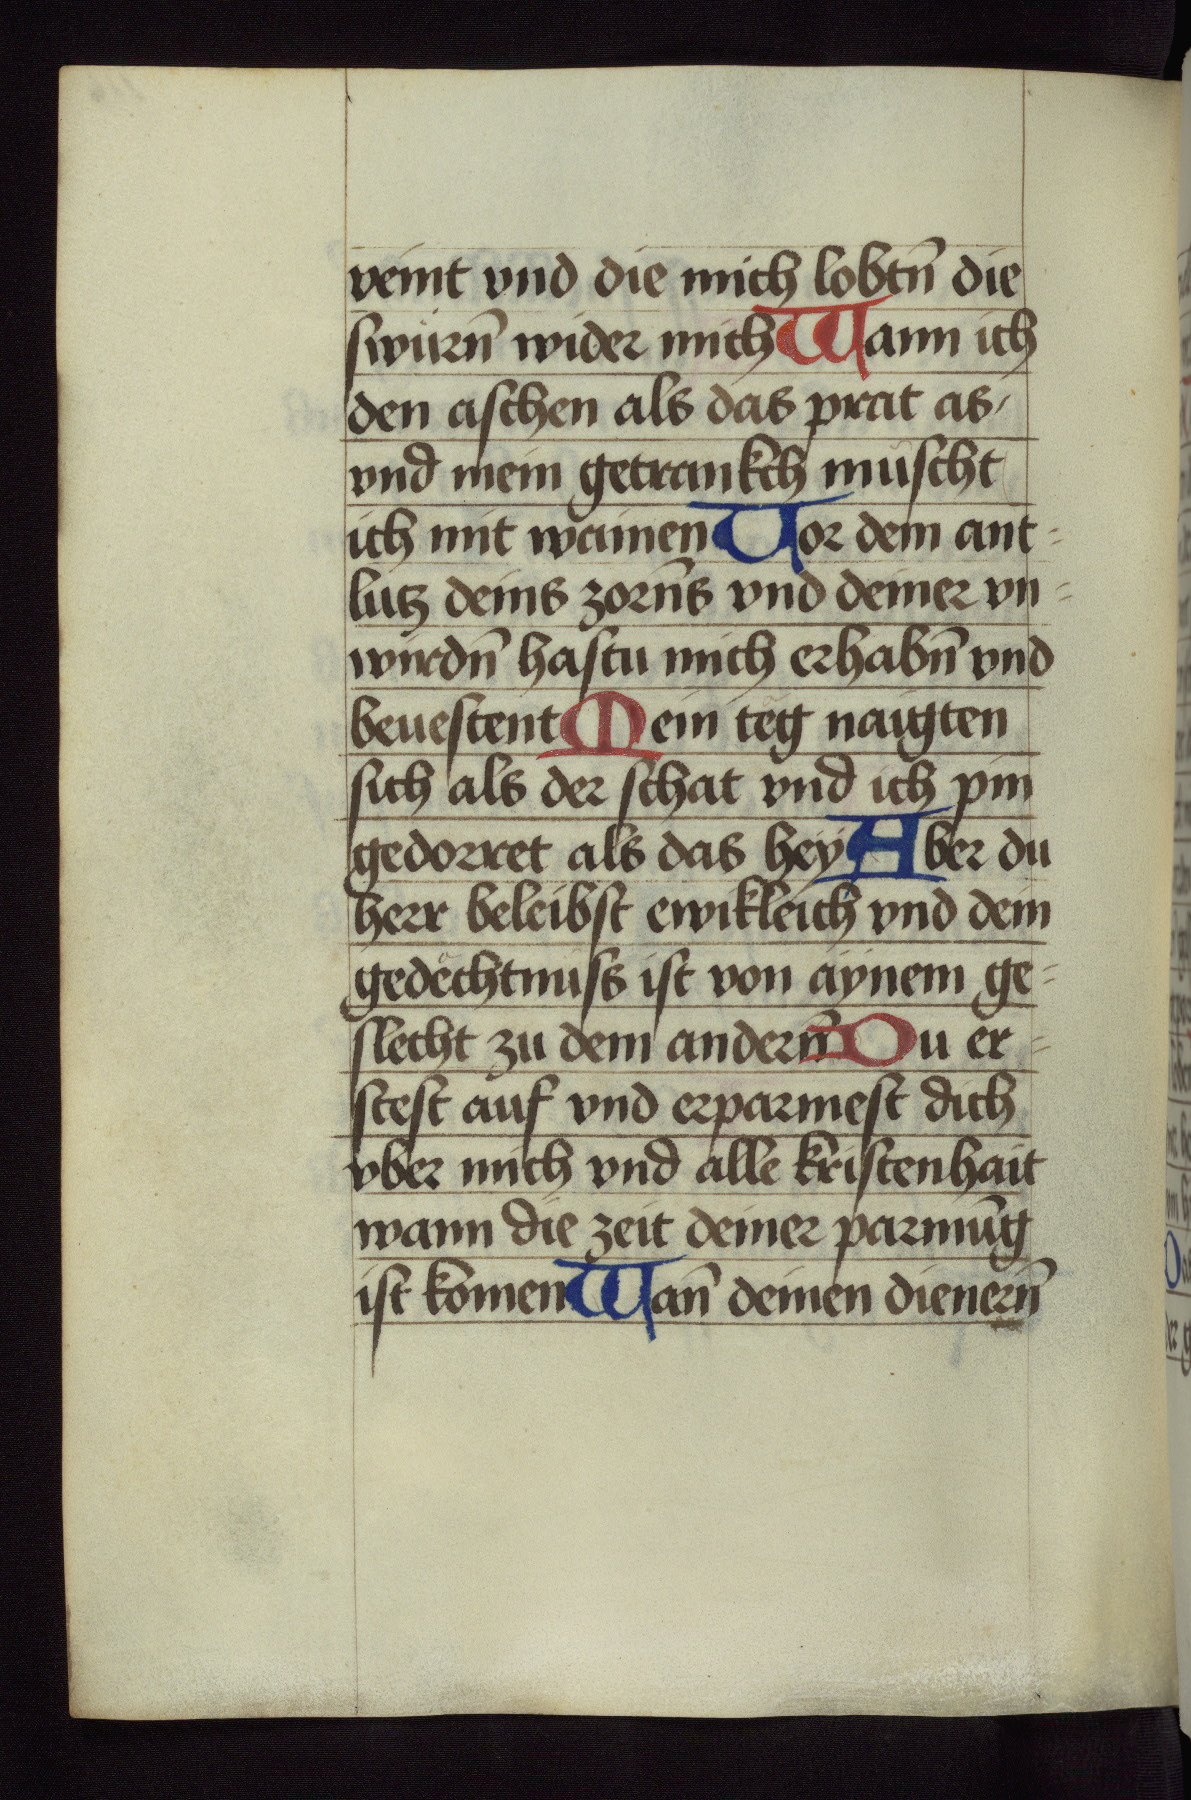 veint vnd die mich lobtn̄ die
swürn̄ wider mich Wann ich
den aschen als das prat as /
vnd mein getrankch müscht
ich mit wainen Vor dem ant=
lutz deins zorn̄s vnd deiner vn=
wirdn̄ hastu mich erhabn̄ vnd
beuestent Mein teg naigten
sich als der schat vnd ich pin
gedorret als das hey Aber du
herr beleibst ewikleich vnd dein
gedechtnuss ist von aynem ge=
slecht zu dem andern̄ Du er=
stest auf vnd erparmest dich
vber mich vnd alle kristenhait
wann die zeit deiner parmūg
ist komen Wan̄ deinen dienern̄